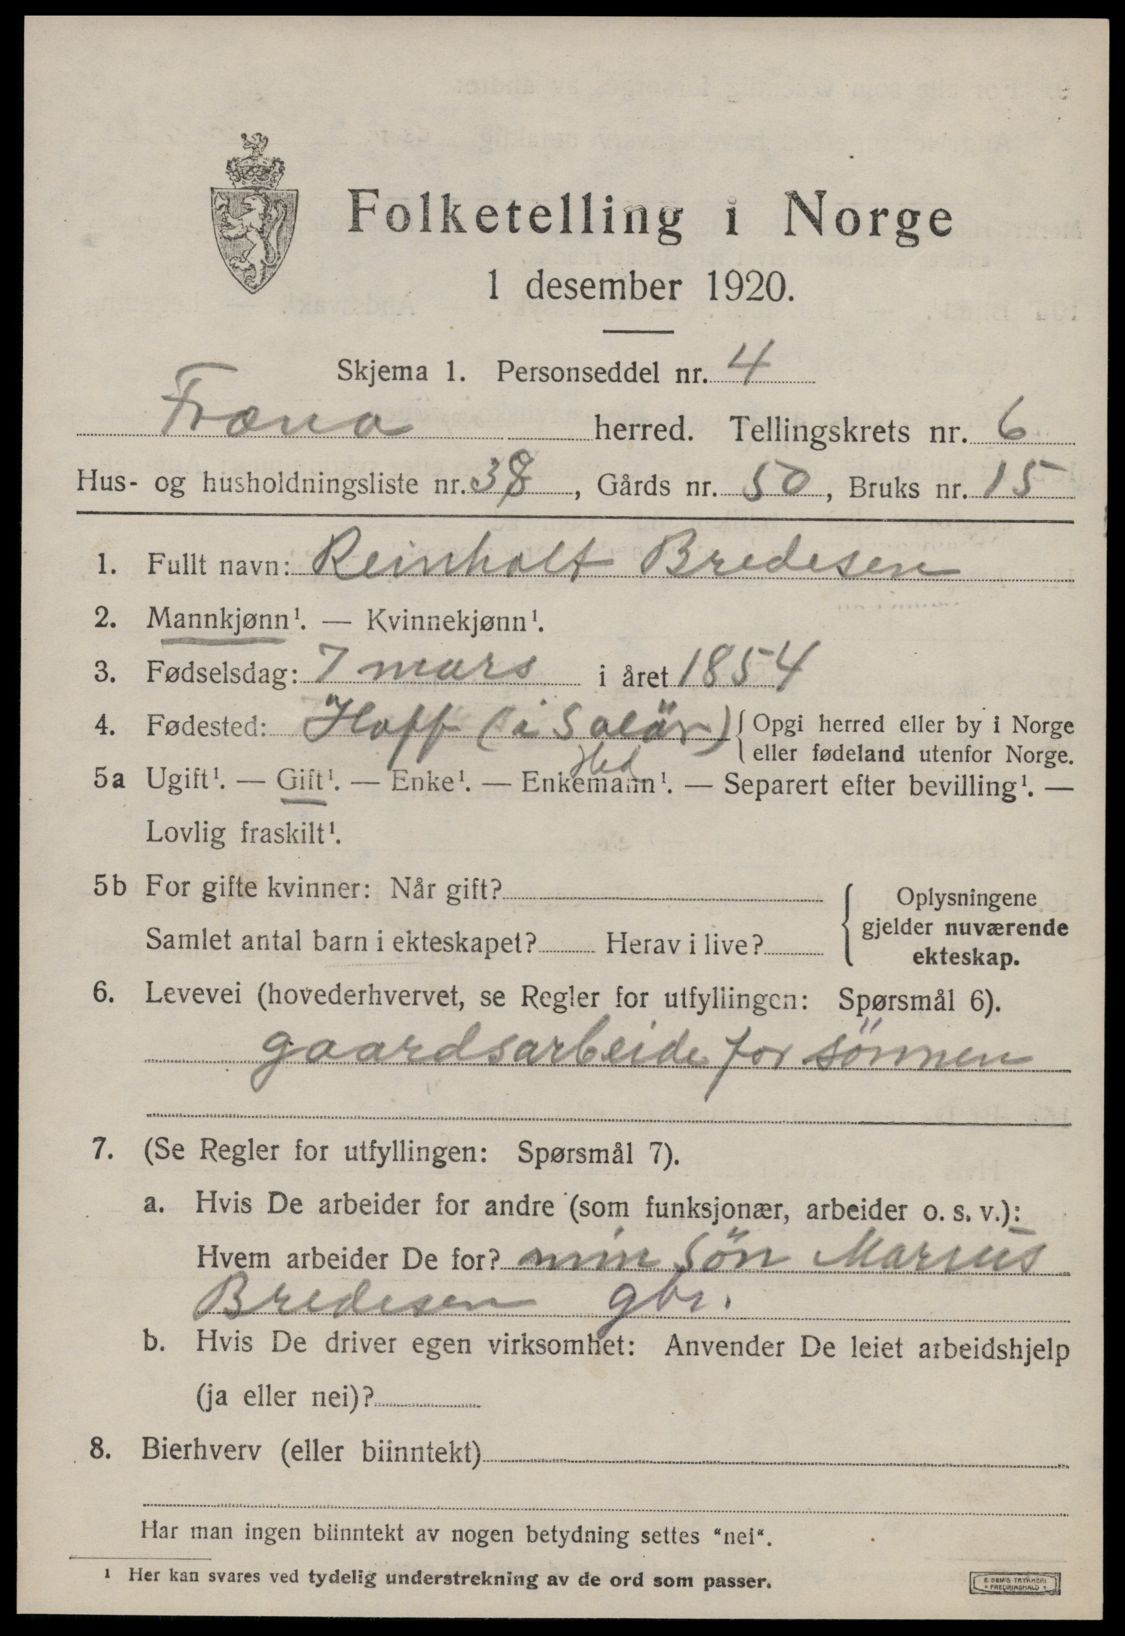 Folketelling i Norge
1 desember 1920.
Skjema 1. Personseddel nr. 4
Fræna herred. Tellingskrets nr. 6
Hus- og husholdningsliste nr. 38, Gårds nr. 50, Bruks nr. 15
1. Fullt navn: Reinholt Bredesen
2. Mannkjønn¹. — Kvinnekjønn¹.
3. Fødselsdag: 7 mars i året 1854
4. Fødested: Hoff (i Solör) { Opgi herred eller by i Norge
eller fødeland utenfor Norge.
Hed
5a Ugift¹. — Gift¹. — Enke¹. — Enkemann¹. — Separert efter bevilling¹. —
Lovlig fraskilt¹.
5b For gifte kvinner: Når gift?
Samlet antal barn i ekteskapet? Herav i live?
{ Oplysningene
gjelder nuværende
ekteskap.
6. Levevei (hovederhvervet, se Regler for utfyllingen: Spørsmål 6).
gaardsarbeide for sönnen
7. (Se Regler for utfyllingen: Spørsmål 7).
a. Hvis De arbeider for andre (som funksjonær, arbeider o. s. v.):
Hvem arbeider De for? min Sön Marius
Bredesen gbr.
b. Hvis De driver egen virksomhet: Anvender De leiet arbeidshjelp
(ja eller nei)?
8. Bierhverv (eller biinntekt)
Har man ingen biinntekt av nogen betydning settes "nei".
¹ Her kan svares ved tydelig understrekning av de ord som passer.
E. SEM'S TRYKKERI
FREDRIKSHALD